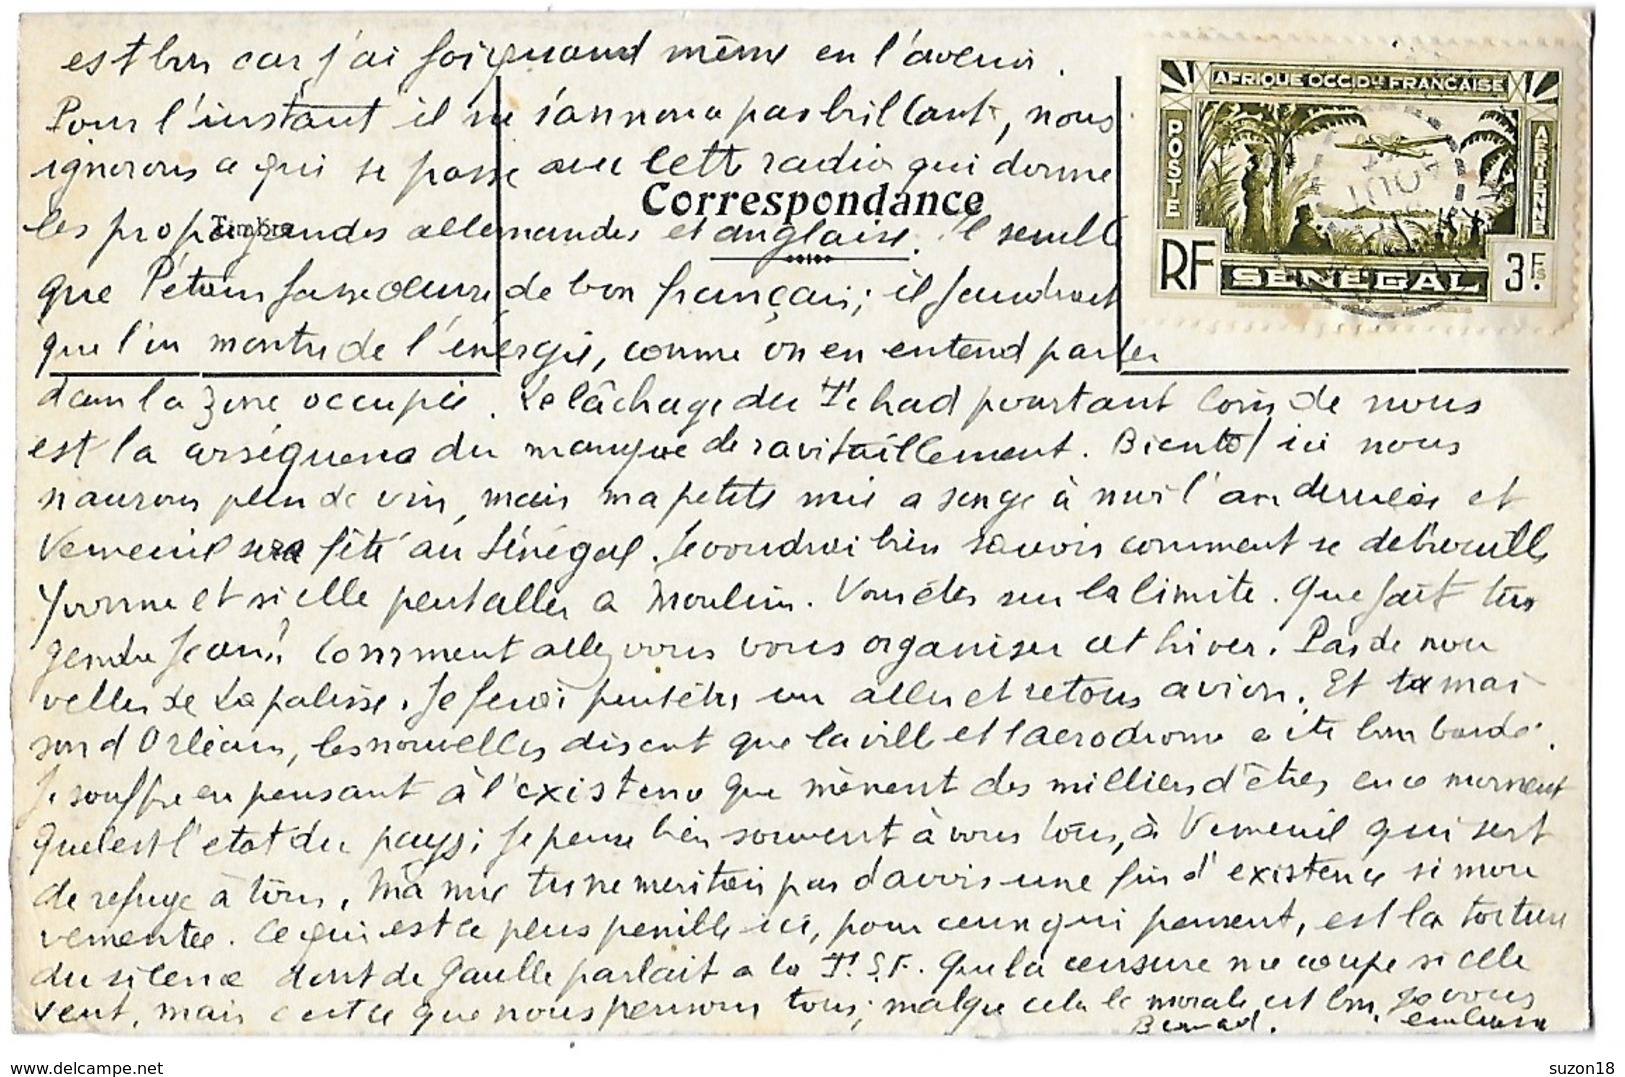 est bon car j'ai foi quand même en l'avenir.
Pour l'instant il ne s'annonce pas brillant, nous
ignorons ce qui se passe avec cette radio qui donne
les propagandes allemandes et anglaise. Il semble
que Pétain fasse œuvre de bon français; il faudrait
que l'on montre de l'énergie, comme on en entend parler
dans la zone occupée. Le lâchage du Tchad pourtant loin de nous
est la conséquence du manque de ravitaillement. Bientôt ici nous
n'aurons plus de vin, mais ma petite mie a songé à moi l'an dernier et
Verneuil sera fêté au Sénégal. Je voudrai bien savoir comment se debrouille
Yvonne et si elle peut aller a Moulin. Vous êtes sur la limite. Que fait ton
gendre Jean? Comment allez vous vous organiser cet hiver. Pas de nou
velles de Lapalisse. Je ferai peut être un aller et retour avion. Et ta mai
son d'Orléans, les nouvelles disent que la ville et l'aerodrome a été bombardé.
Je souffre en pensant à l'existence que mènent des milliers d'êtres en ce moment
Quel est l'etat du pays; Je pense bien souvent à vous tous, à Verneuil qui sert
de refuge à tous. Ma mie tu ne meritais pas d'avoir une fin d'existence si mou
vementée. Ce qui est le plus penible ici, pour ceux qui pensent, est la torture
du silence dont de Gaulle parlait a la T.S.F. Que la censure me coupe si elle
veut, mais c'est ce que nous pensons tous; malgre cela le morale est bon. Je vous
embrasse
Bernard.
Correspondance
Timbre
AFRIQUE OCCID<sup>LE</sup> FRANÇAISE
POSTE
AERIENNE
RF
SENEGAL
3 Fs
delcampe.net
suzon18